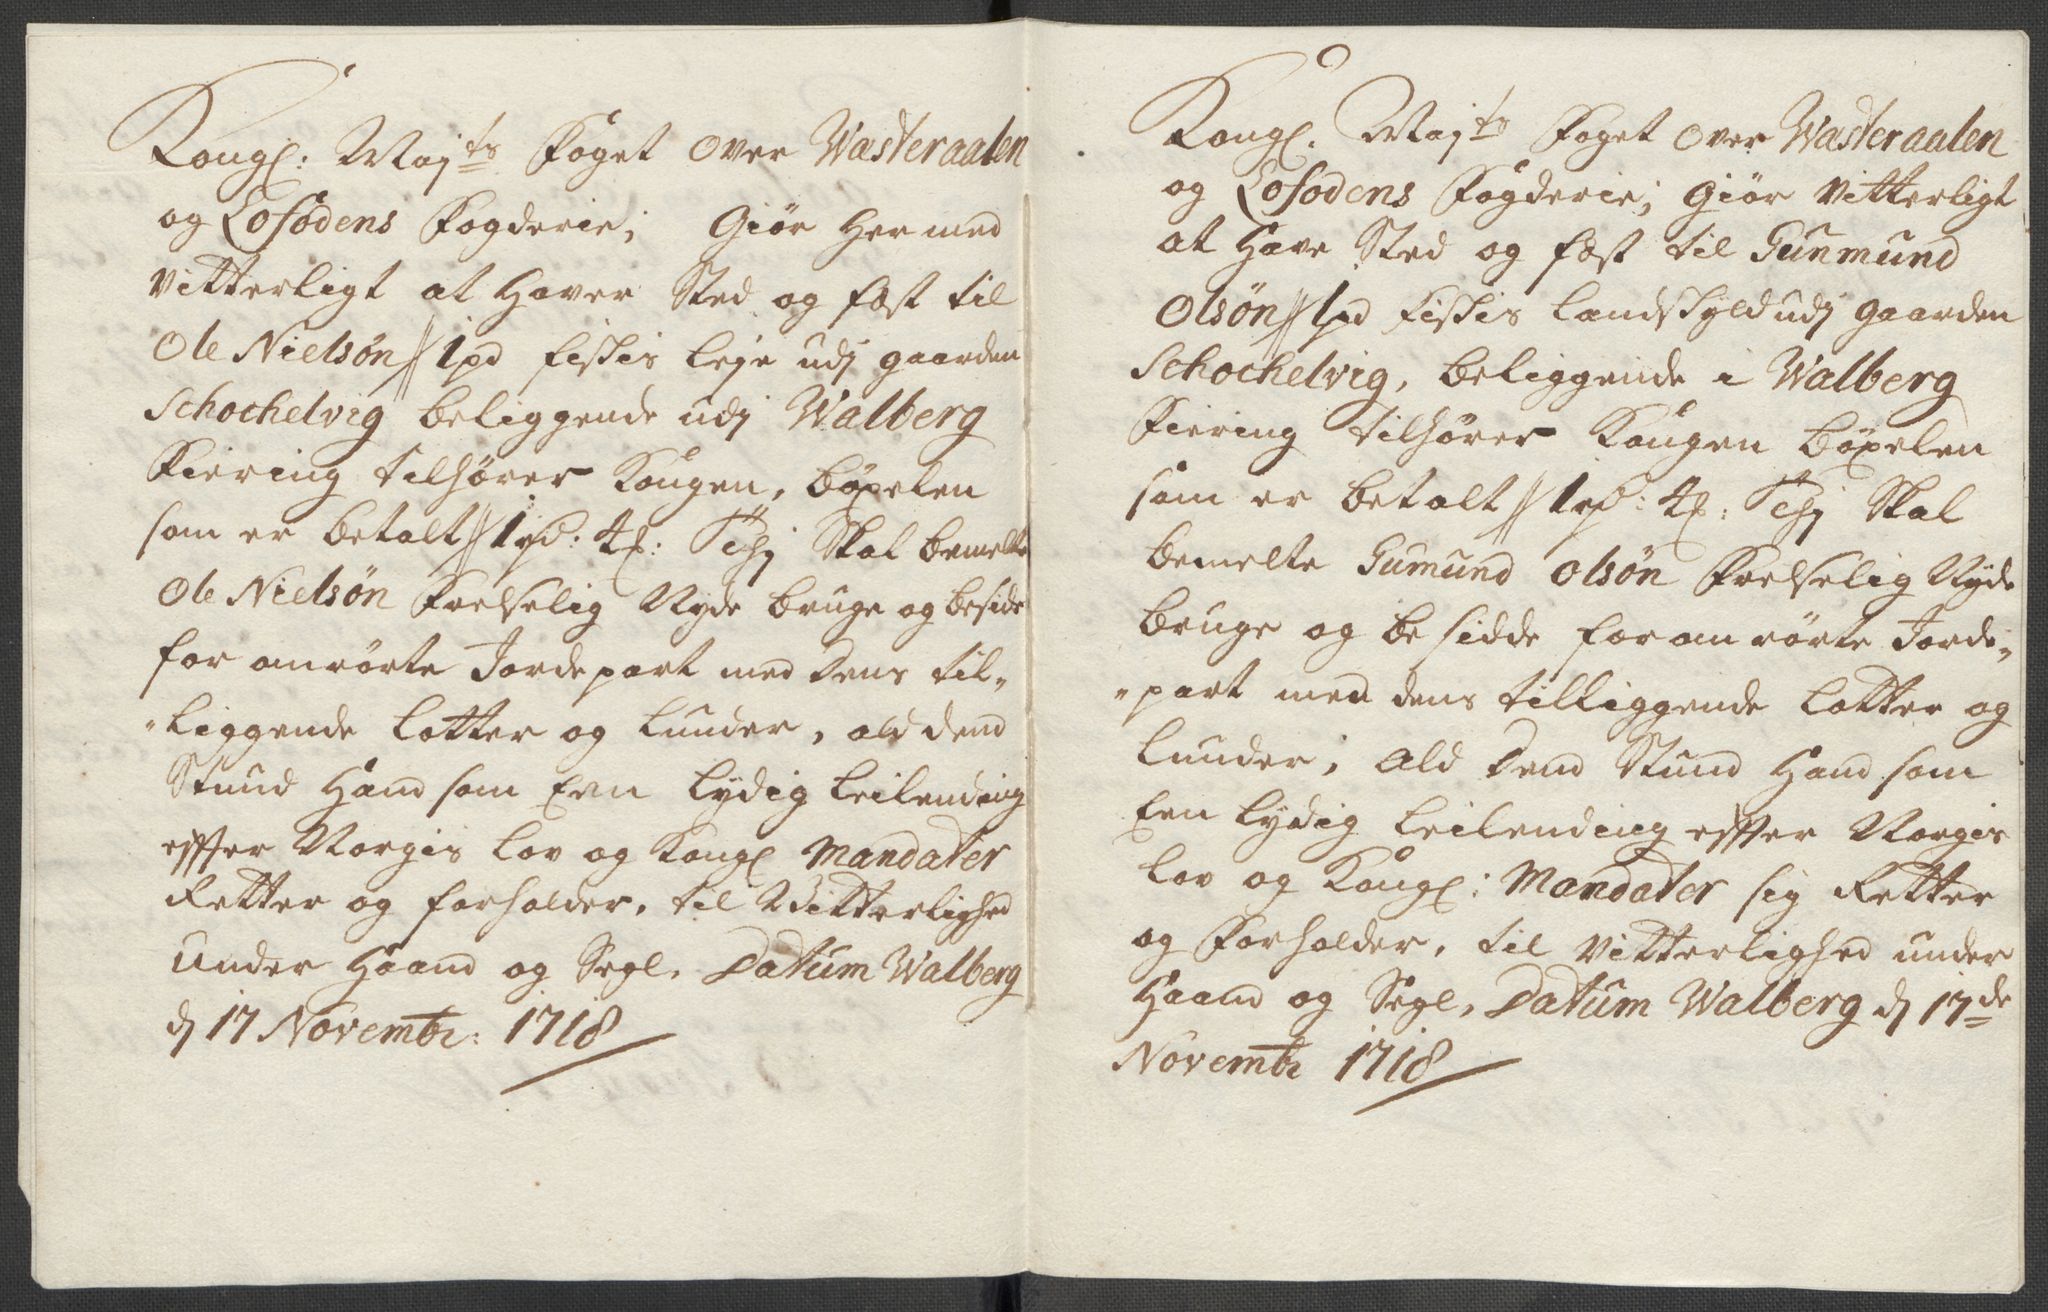 Kongl: Maj.ts Foget over Wæsteraalen
og Lofodens Fogderie; Giør Hermed
Vitterligt at Haver Sted og fæst til
Ole Nielsøn // 1 pd Fischis leje udj gaarden
Schochelvig beliggende udj Walberg
Fiering tilhører Kongen, böxelen
som er betalt // 1 rd: 4 ß: Thj Skal bemelte
Ole Nielsøn Frelselig Nyde bruge og beside
for anrørte Jordepart med Dens til„
„liggende lotter og lunder, ald dend
Stund Hand som Een lydig leilending
effter Norgis lov og Kongl Mandater
Retter og forholder, til Vitterlighed
under Haand og Segl, Datum Walberg
dj 17 Novembr: 1718
Kongl. Maj.ts Foget over Wæsteraalen
og Lofodens Fogderie; Giør Vitterligt
at Have Sted og fæst til Gunmund
Olsøn // 1 pd Fischis landskyld udj gaarden
Schochelvig, beliggende i Walberg
Fiering tilhører Kongen böxelen
som er betalt // 1 rd: 4 ß: Thj Skal
bemelte Gumund Olsøn Frelselig Nyde
bruge og besidde for anrørte Jorde„
„part med dens tilliggende lotter og
lunder; Ald Dend Stund Hand som
Een lydig leilending effter Norgis
lov og Kongl: Mandater sig Retter
og Forholder, til Vitterlighed under
Haand og Segl, Datum Walberg dj 17de
Novembr 1718